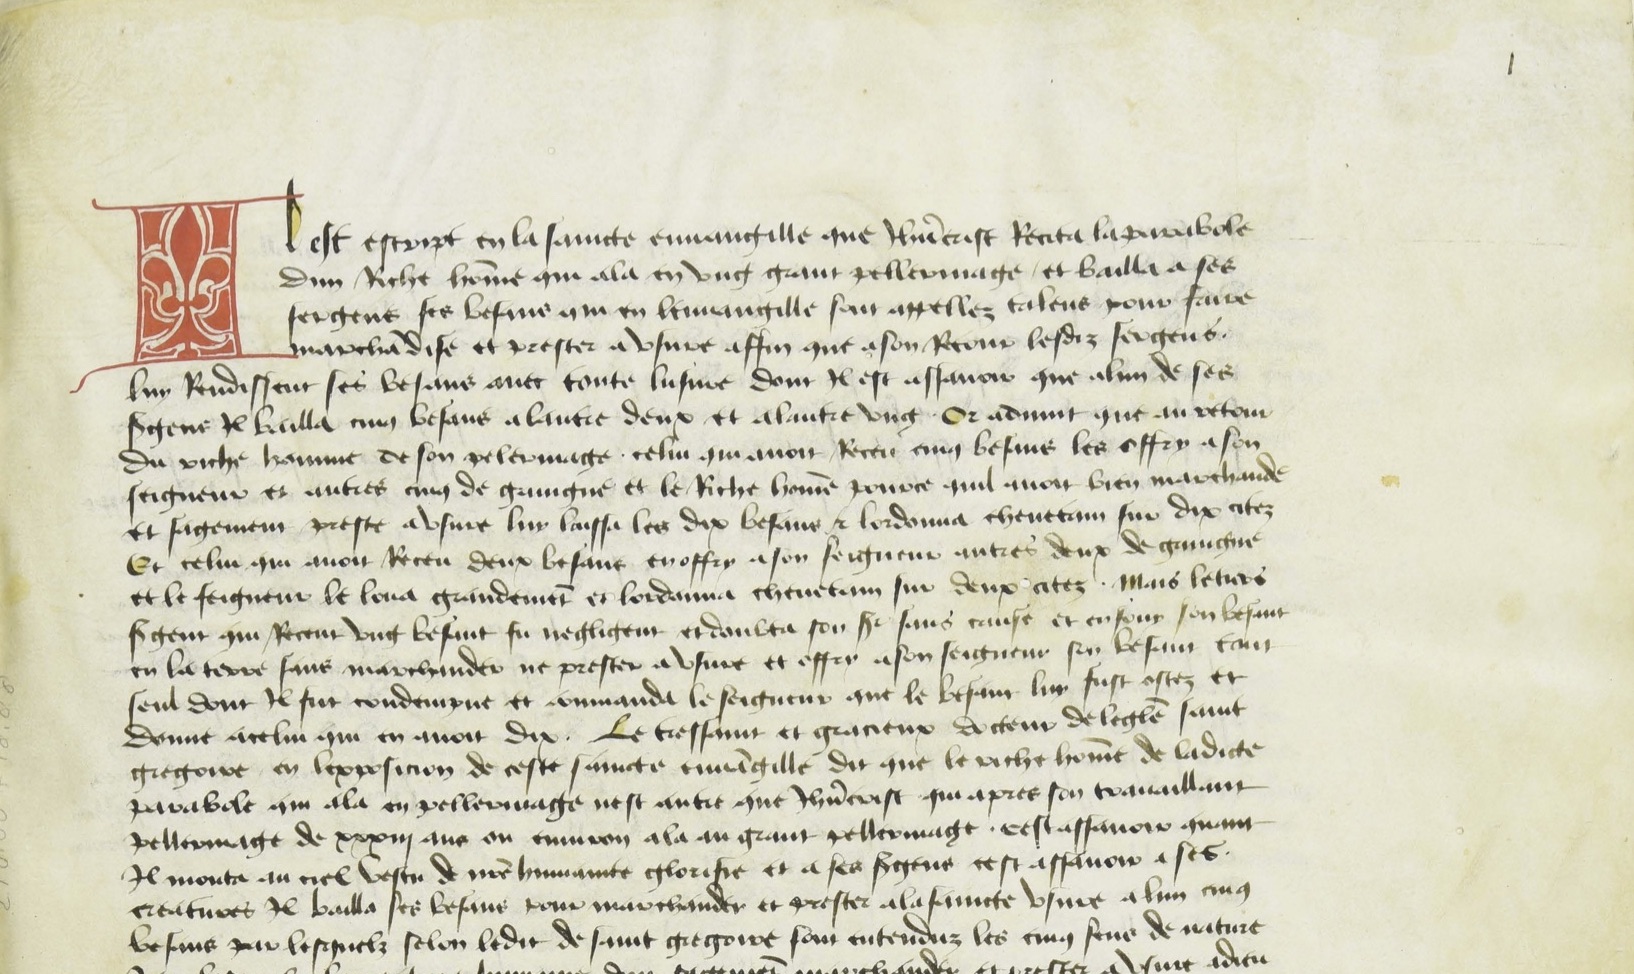 1
Il est escript en la saincte euuangille que Jhūcrist Recita la parabole
dun Riche hōme qui ala en vng grant pellerinage / et bailla a ses
sergens ses besans qui en leuuangille sont appellez talens pour faire
marchādise et prester a vsure affin que a son Retour lesdiz sergens.
luy Rendissent ses besans auec toute lusure dont Jl est assauoir que a lun de ses
s̄gens Jl bailla cinq besans a lautre deux et a lautre vng. Or aduint que au retour
du riche homme de son pelerinage. celui qui auoit Receu cinq besans les offry a son
seigneur et autres cinq de gaingne et le Riche hōme pource quil auoit bien marchande
et sagement preste a vsure luy laissa les dix besans & lordonna cheuetain sur dix citez
Et celui qui auoit Receu deux besans en offry a son seigneur autres deux de gaingne
et le seigneur le loua grandemēt et lordonna cheuetain sur deux citez. Mais le tiers
s̄gent qui Receut vng besant fu negligent et doubta son sr̄ sans cause et enfouy son besant
en la terre sans marchander ne prester a vsure et offry a son seigneur son besant tout
seul dont Jl fut condempne et commanda le seigneur que le besant luy fust ostez et
donne a celui qui en auoit dix. Le tressaint et gracieux docteur de leglē saint
gregoire en lexposicion de ceste saincte euuāgille dit que le riche hōme de ladicte
parabole qui ala en pellerinage nest autre que Jhūcrist qui apres son trauaillant
pellerinage de xxxiij ans ou enuiron ala au grant pellerinage. cest assauoir quant
Jl monta au ciel vestu de nr̄e humanite glorifie et a ses s̄gens cest assauoir a ses.
creatures Jl bailla ses besans pour marchander et prester a la saincte vsure a lun cinq
besans par lesquelz selon ledit de saint gregoire sont entenduz les cinq sens de nature
marchander et prester a vsure a dieu